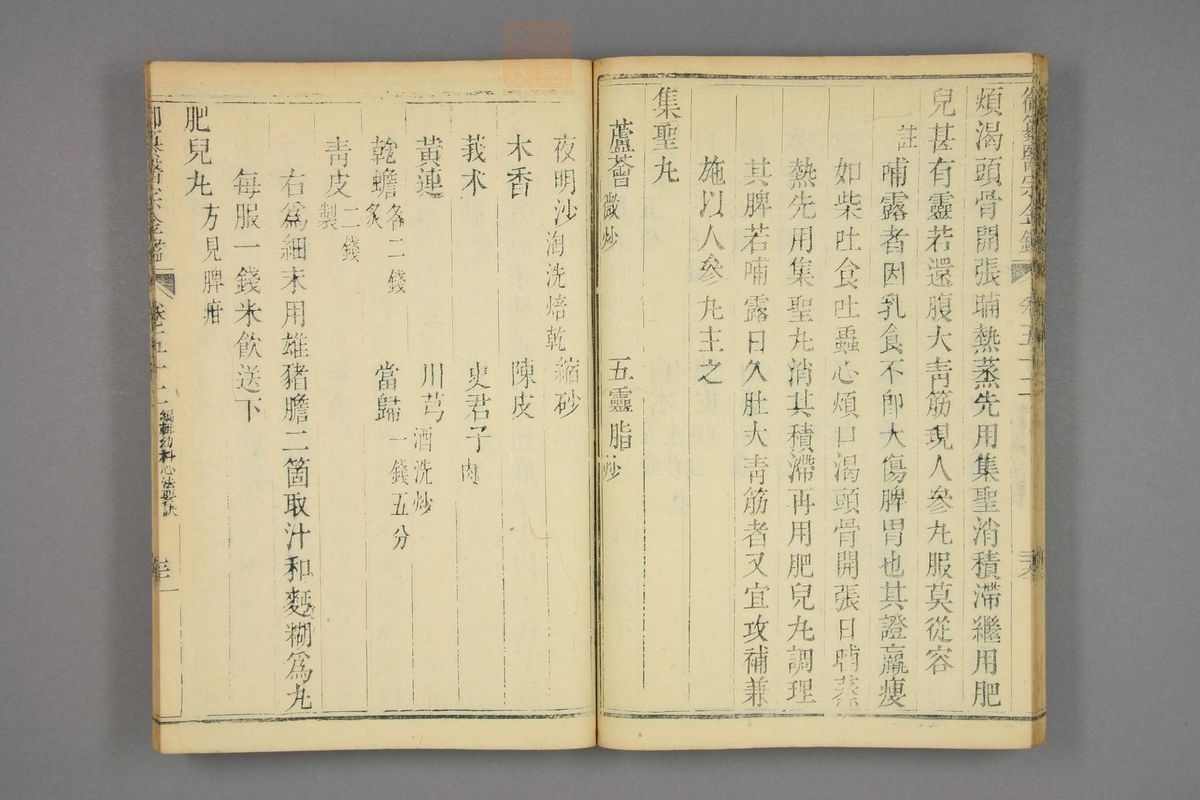 煩渴頭骨開張晡熱蒸先用集聖消積滯繼用肥
兒甚有靈若還腹大青筋現人參丸服莫從容
註 哺露者因乳食不節大傷脾胃也其證羸瘦
如柴吐食吐蟲心煩口渴頭骨開張日晡蒸
熱先用集聖丸消其積滯再用肥兒丸調理
其脾若哺露日久肚大青筋者又宜攻補兼
施以人參丸主之
集聖丸
蘆薈微炒 五靈脂炒
夜明沙淘洗焙乾 縮砂
木香 陳皮
莪朮 史君子肉
黃連 川芎酒洗炒
乾蟾炙各二錢 當歸一錢五分
青皮二錢製
右為細末用雄豬膽二箇取汁和麪糊為丸
每服一錢米飲送下
肥兒丸方見脾疳
御纂醫宗金鑑 卷五十二 編輯幼科心法要訣